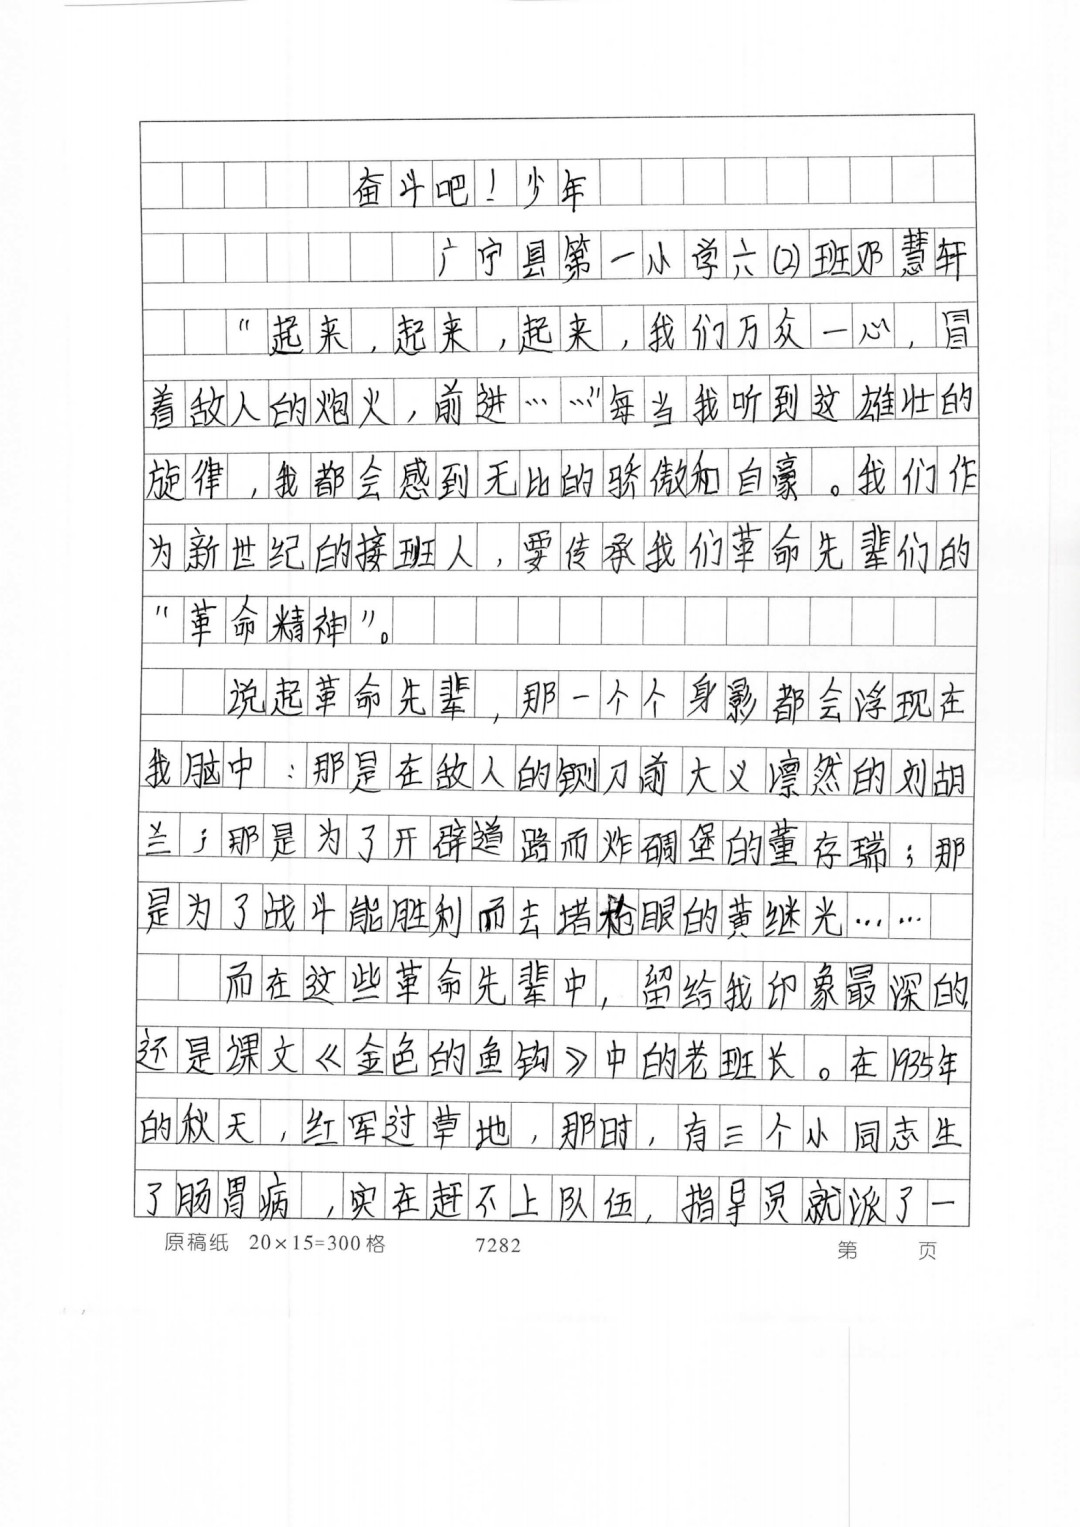 奋斗吧！少年
广宁县第一小学六(2)班邓慧轩
“起来，起来，起来，我们万众一心，冒
着敌人的炮火，前进……”每当我听到这雄壮的
旋律，我都会感到无比的骄傲和自豪。我们作
为新世纪的接班人，要传承我们革命先辈们的
“革命精神”。
说起革命先辈，那一个个身影都会浮现在
我脑中：那是在敌人的铡刀前大义凛然的刘胡
兰；那是为了开辟道路而炸碉堡的董存瑞；那
是为了战斗能胜利而去堵枪眼的黄继光……
而在这些革命先辈中，留给我印象最深的
还是课文《金色的鱼钩》中的老班长。在1935年
的秋天，红军过草地，那时，有三个小同志生
了肠胃病，实在赶不上队伍，指导员就派了一
原稿纸 20×15=300格 7282 第 页